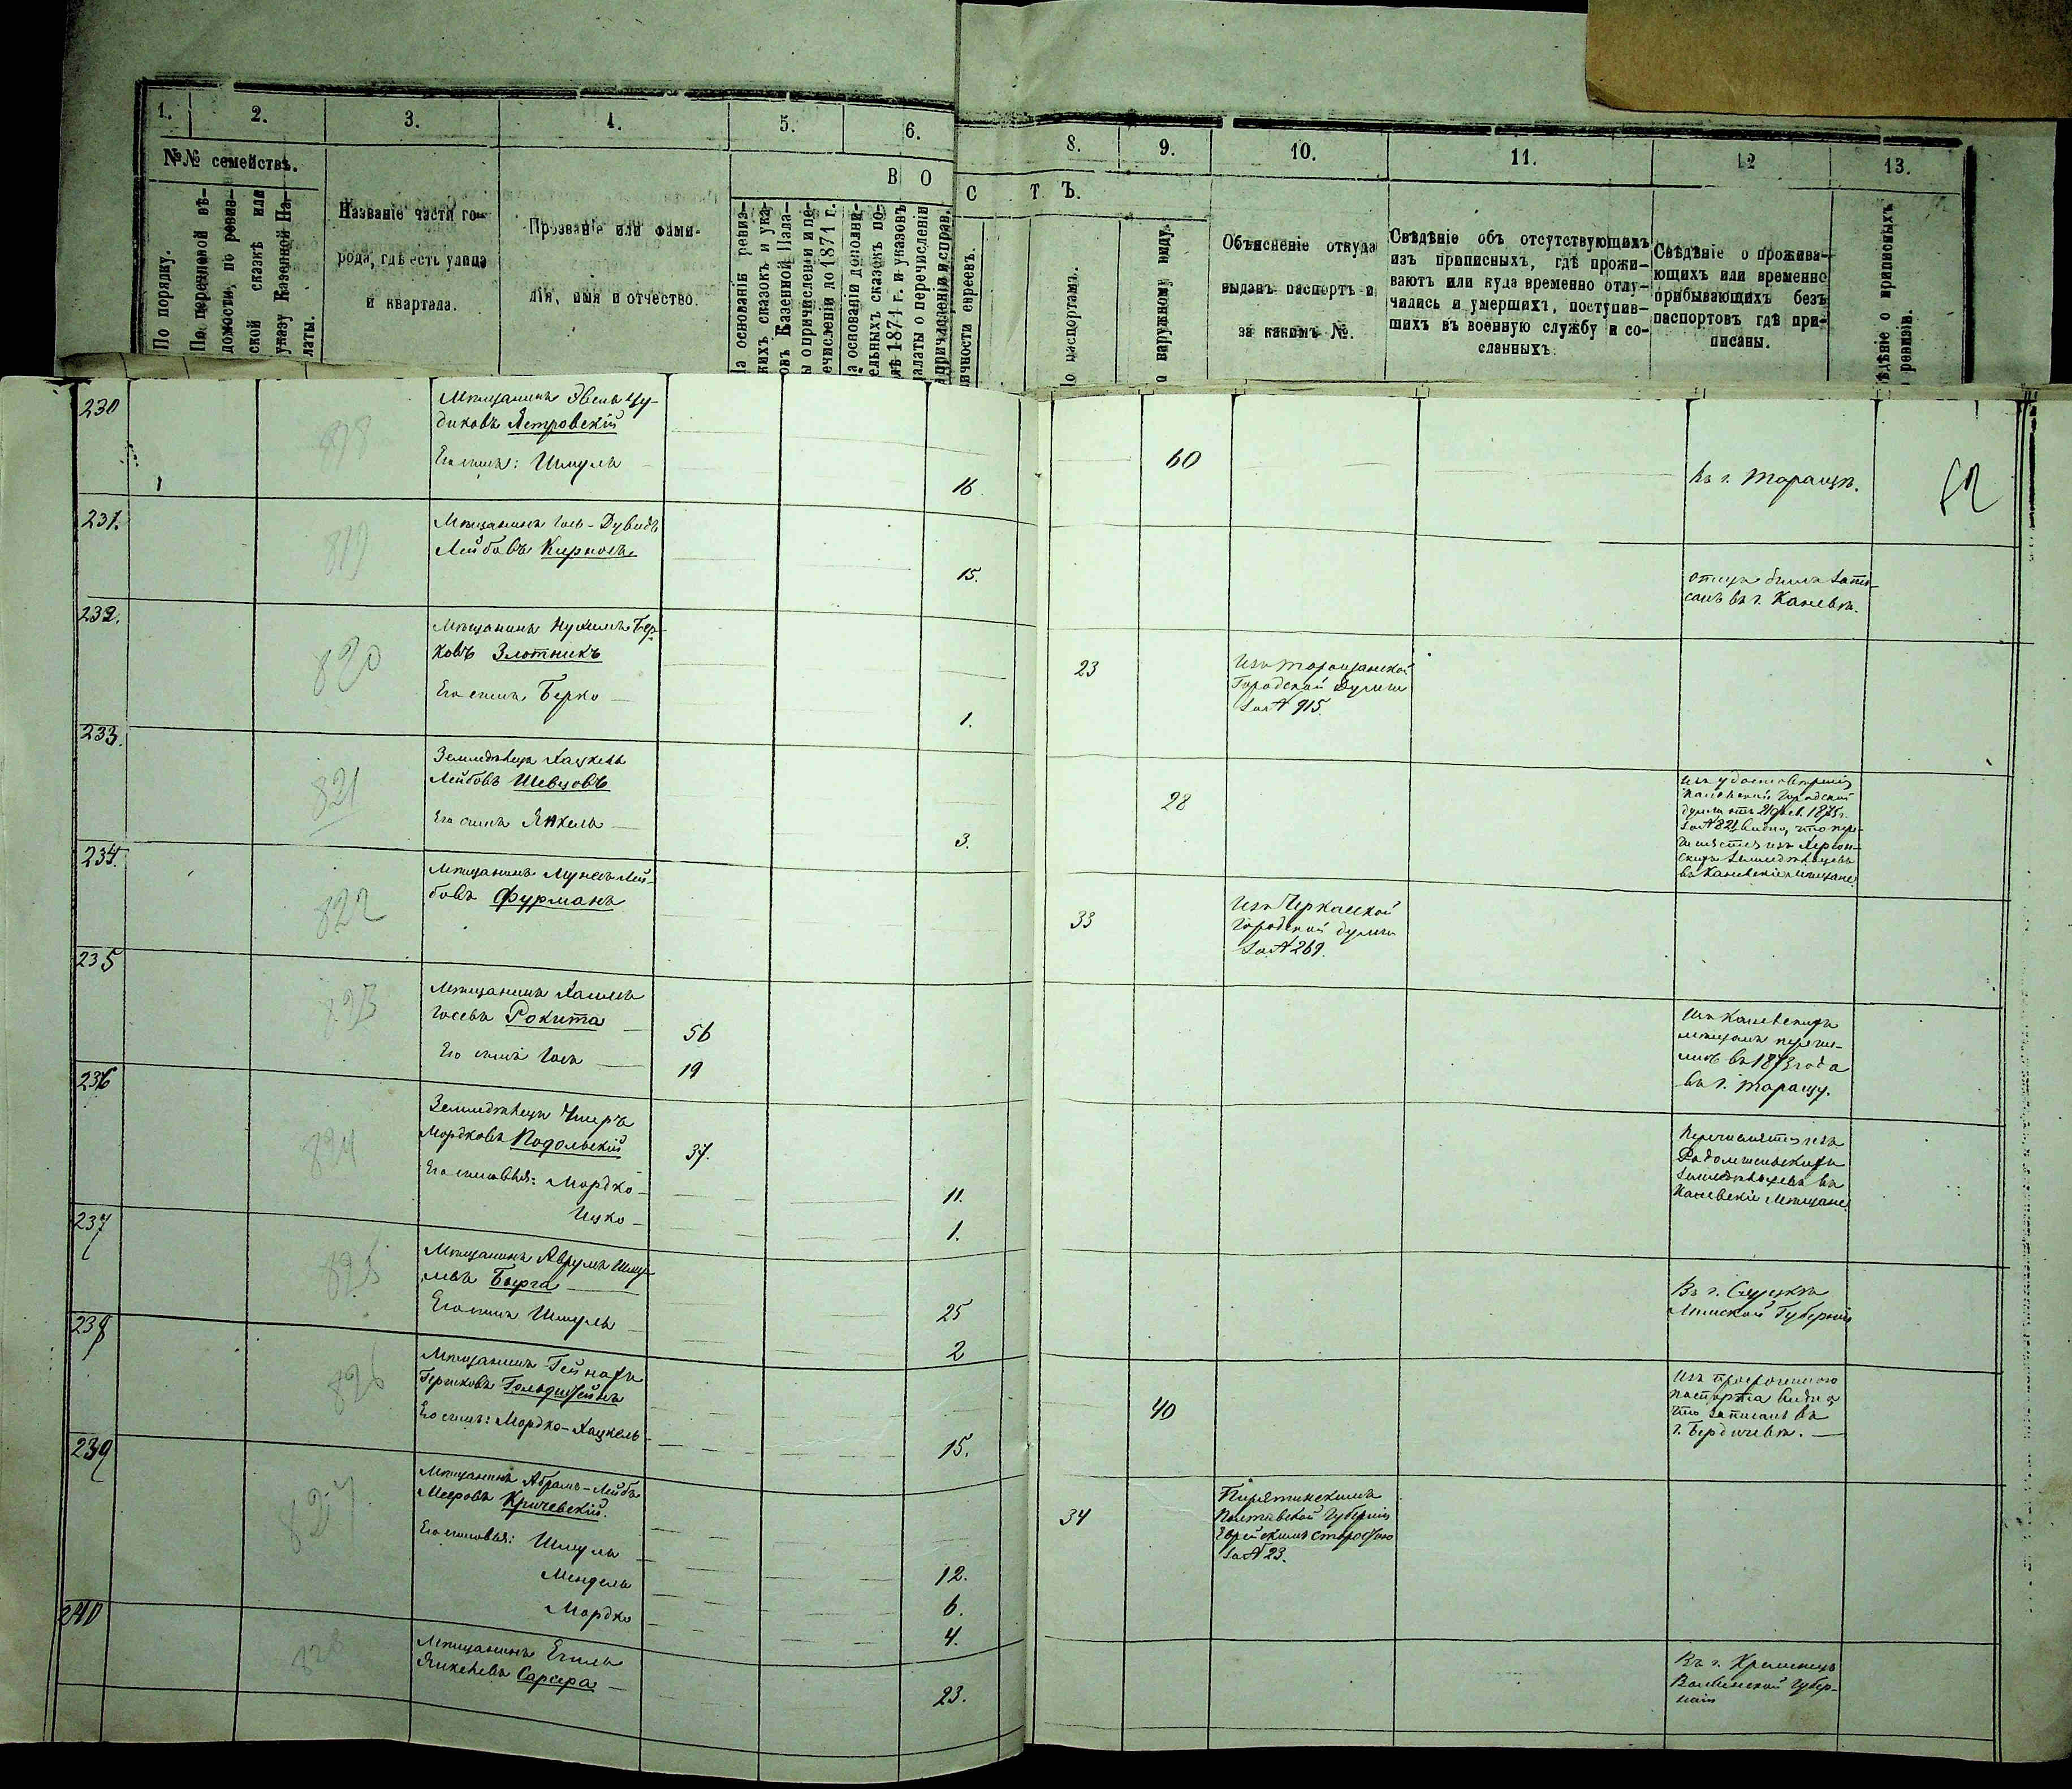 1. 2. 3. 4. 5. 6. 8. 9. 10. 11. 12 13.
№№ семействъ.
По порядку.
По перечневой вѣ-
домости, по ревиз-
ской сказкѣ или
указу Казенной Па-
латы.
Названіе части го-
рода, гдѣ есть улица
и квартала.
Прозваніе или фами-
лія, имя и отчество.
В О
С Т Ъ.
На основаніи ревиз-
скихъ сказокъ и ука-
зовъ Казенной Пала-
ты о причисленіи и пе-
речисленіи до 1874 г.
На основаніи дополни-
тельныхъ сказокъ по-
слѣ 1874 г. и указовъ
палаты о перечисленіи
и причисленіи и справ.
личности евреевъ.
По паспортамъ.
По наружному виду.
Объясненіе откуда
выданъ паспортъ и
за какимъ №.
Свѣдѣніе объ отсутствующихъ
изъ приписныхъ, гдѣ прожи-
ваютъ или куда временно отлу-
чились и умершихъ, поступив-
шихъ въ военную службу и со-
сланныхъ.
Свѣдѣніе о прожива-
ющихъ или временно
прибывающихъ безъ
паспортовъ гдѣ при-
писаны.
Свѣдѣніе о приписныхъ
по ревизіи.
230
818
Мѣщанинъ Эвель Цу-
диковъ Ястровскій
60
Его сынъ: Шмуль
16.
Въ г. Таращѣ.
52
231.
819
Мѣщанинъ Іось-Дувидъ
Лейбовъ Кирносъ
15.
отецъ былъ запи-
санъ въ г. Каневѣ.
232.
820
Мѣщанинъ Нухимъ Бер-
ковъ Злотникъ
23
Изъ Таращанской
Городской Думы
за № 915.
Его сынъ Берко
1.
233.
821
Земледѣлецъ Хацкель
Лейбовъ Шевцовъ
28
Его сынъ Янкель
3.
Изъ удостовѣренія
Каневской Городской
думы отъ 21 1875 г.
за № 821 видно, что пере-
изъ Херсон-
скихъ земледѣльцевъ
въ Каневскіе мѣщане.
234.
822
Мѣщанинъ Мунешъ Лей-
бовъ Фурманъ
33
Изъ Черкасской
Городской думы
за № 269.
235
823
Мѣщанинъ Хаимъ
Іосевъ Рокита
56
Его сынъ Іось
19
Изъ Каневскихъ
мѣщанъ перечи-
сленъ въ 1873 года
въ г. Таращу.
236
824
Земледѣлецъ Умеръ
Мордковъ Подольскій
37.
Его сыновья: Мордко
11.
Ицко
1.
Перечисляется изъ
Радомысльскихъ
земледѣльцевъ въ
Каневскіе мѣщане.
237
825
Мѣщанинъ Аврумъ Шму-
левъ Берга
25
Его сынъ Шмуль
2
Въ г. Слуцкѣ
Минской Губерніи
238
826
Мѣщанинъ Гейнахъ
Гершковъ Гольдштейнъ
40
Его сынъ: Мордко-Хацкель
15.
Изъ просроченнаго
паспорта видно
что записанъ въ
г. Бердичевѣ.
239
827
Мѣщанинъ Абрамъ-Лейбъ
Мееровъ Кричевскій.
34
Пирятинскимъ
Полтавской Губерніи
Еврейскимъ старостою
за № 23.
Его сыновья: Шмуль
12.
Мендель
6.
Мордко
4.
240
828
Мѣщанинъ Егиль
Янкелевъ Сарсера
23.
Въ г. Кременцѣ
Волынской Губер-
ніи